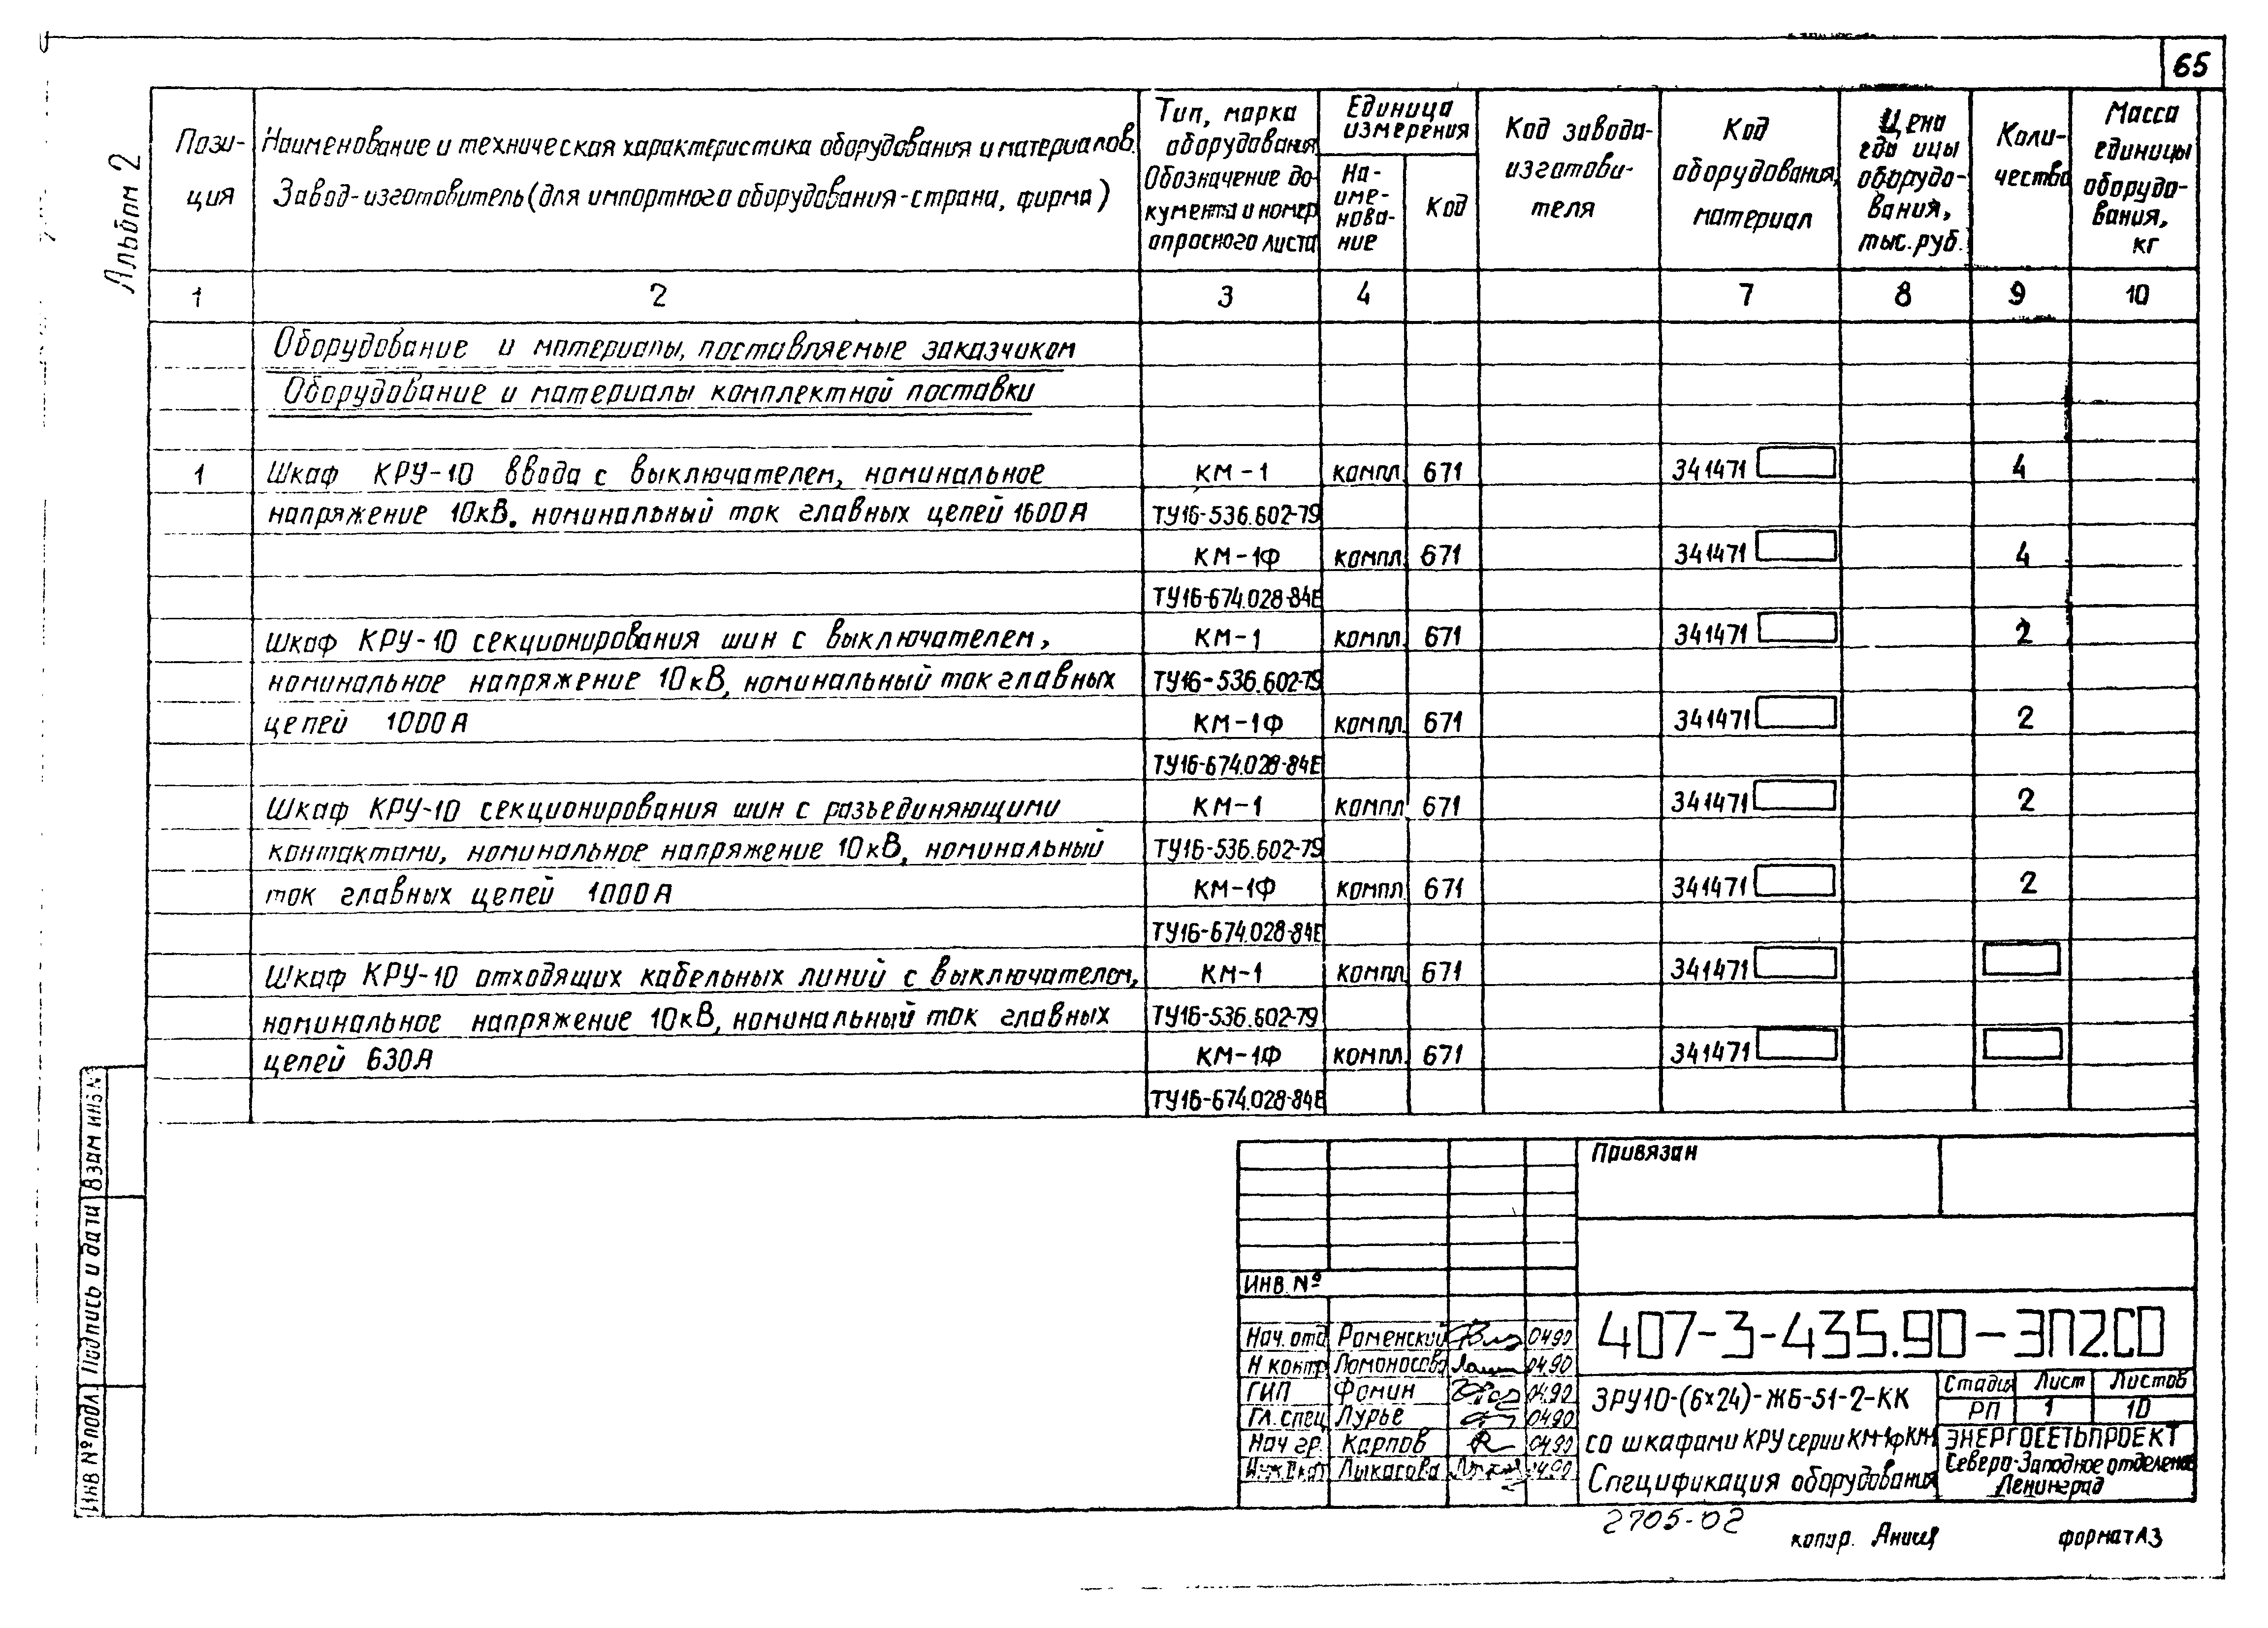 65
Альбом 2
Пози-
ция
Наименование и техническая характеристика оборудования и материалов.
Завод-изготовитель (для импортного оборудования - страна, фирма)
Тип, марка
оборудования
Обозначение до-
кумента и номер
опросного листа
Единица
измерения
На-
име-
нова-
ние
Код
Код завода-
изготови-
теля
Код
оборудования,
материал
Цена
еди ицы
оборудо-
вания,
тыс. руб.
Коли-
чество
Масса
единицы
оборудо-
вания,
кг
1 2 3 4 7 8 9 10
Оборудование и материалы, поставляемые заказчиком
Оборудование и материалы комплектной поставки
1 Шкаф КРУ-10 ввода с выключателем, номинальное КМ-1 компл. 671 341471 4
напряжение 10кВ, номинальный ток главных цепей 1600А ТУ16-536.602-79
КМ-1Ф компл. 671 341471 4
ТУ16-674.028-84Е
Шкаф КРУ-10 секционирования шин с выключателем, КМ-1 компл. 671 341471 2
номинальное напряжение 10кВ, номинальный ток главных ТУ16-536.602-79
цепей 1000А КМ-1Ф компл. 671 341471 2
ТУ16-674.028-84Е
Шкаф КРУ-10 секционирования шин с разъединяющими КМ-1 компл 671 341471 2
контактами, номинальное напряжение 10кВ, номинальный ТУ16-536.602-79
ток главных цепей 1000А КМ-1Ф компл. 671 341471 2
ТУ16-674.028-84Е
Шкаф КРУ-10 отходящих кабельных линий с выключателем, КМ-1 компл. 671 341471
номинальное напряжение 10кВ, номинальный ток главных ТУ16-536.602-79
цепей 630А КМ-1Ф компл. 671 341471
ТУ16-674.028-84Е
Взам инв №
Подпись и дата
Инв № подл.
Привязан
Инв. №
Нач. отд Роменский 04.90
Н контр Ломоносова 04.90
ГИП Фомин 04.90
Гл. спец Лурье 04.90
Нач гр. Карпов 04.90
Лыкасова 04.90
407-3-435.90-ЭП2.СО
ЗРУ10-(6×24)-ЖБ-51-2-КК
со шкафами КРУ серии КМ-1Ф КМ-1
Спецификация оборудования
Стадия Лист Листов
РП 1 10
ЭНЕРГОСЕТЬПРОЕКТ
Северо-Западное отделение
Ленинград
2705-02
копир.
формат А3